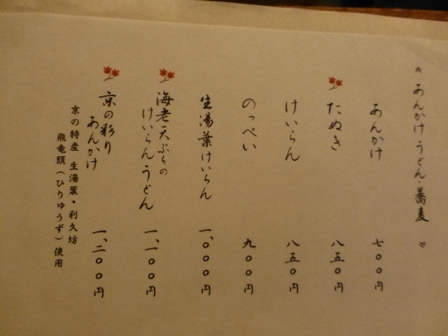 あんかけうどん・蕎麦
あんかけ 七〇〇円
たぬき 八五〇円
けいらん 八五〇円
のっぺい 九〇〇円
生湯葉けいらん 一、〇〇〇円
海老天ぷらの
けいらんうどん 一、一〇〇円
京の彩り
あんかけ 一、二〇〇円
京の特産 生湯葉・利久坊
飛竜頭(ひりゅうず)使用